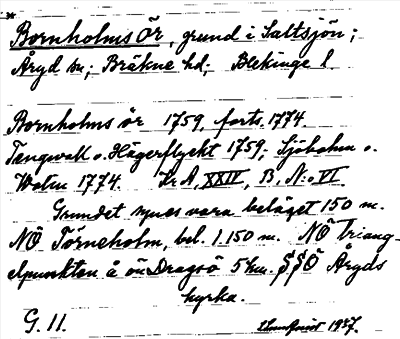 Bornholms ör, grund i Saltsjön;
Åryd sn; Bräkne hd; Blekinge l
Bornholms ör 1759, forts. 1774
Tengwall o. Hägerflyckt 1759; Sjöholm o.
Wolin 1774. Kr. A, XXIV, B, N:o VI.
Grundet synes vara beläget 150 m.
NÖ Törneholm, bel. 1.150 m. NÖ Triang-
elpunkten å ön Dragsö 5 km. SSÖ Åryds
kyrka.
G. 11. 1937.